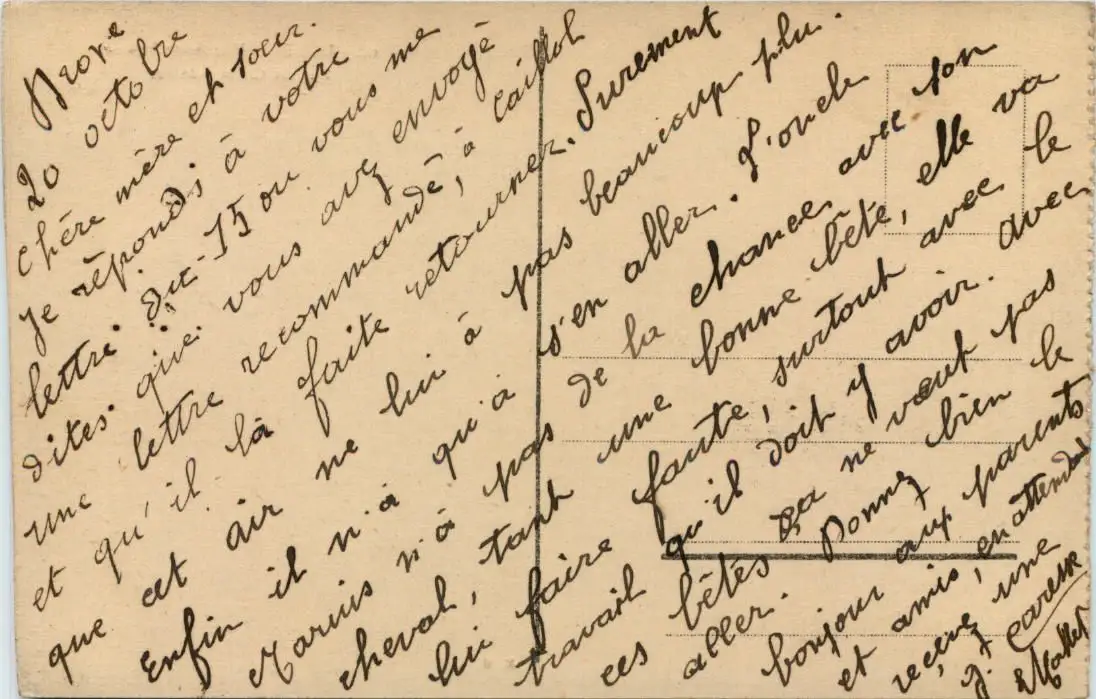 20 octobre
Chère mère et sœur.
Je réponds à votre
lettre du 15 ou vous me
dites que vous avez envoyé
une lettre recommandé, à Caillol
et qu'il là faite retourner. Surement
que cet air ne lui à pas beaucoup plu.
Enfin il n'à qu'à s'en aller. L'oncle
Marius n'à pas de la chance avec son
cheval, tant une bonne bête, elle va
lui faire faute, surtout avec le
travail qu'il doit y avoir. avec
ces bêtes ça ne veut pas
aller. Donnez bien le
bonjour aux parents
et amis, en attendant
recevez une
g. caresse